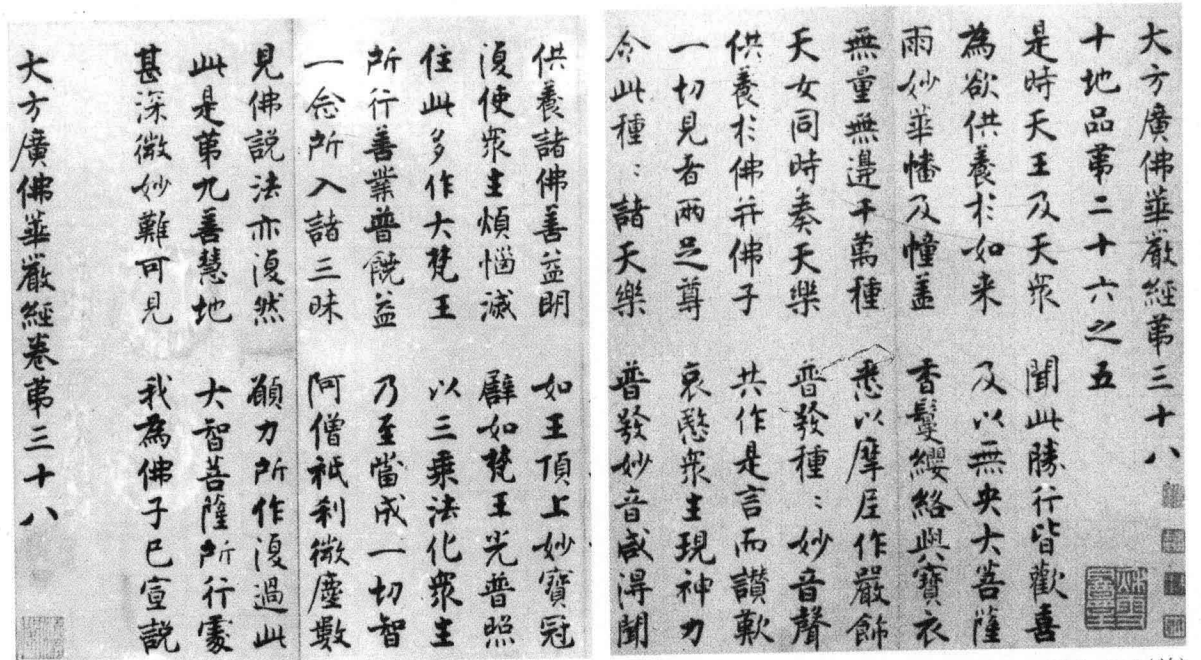 大方廣佛華嚴經第三十八
十地品第二十六之五
是時天王及天衆　聞此勝行皆歡喜
為欲供養於如来　及以無央大菩薩
雨妙華幡及幢盖　香鬘纓絡與寶衣
無量無邊千萬種　悉以摩尼作嚴飾
天女同時奏天樂　普發種：妙音聲
供養於佛并佛子　共作是言而讃歎
一切見者兩足尊　哀愍衆生現神力
令此種：諸天樂　普發妙音咸淂聞
供養諸佛善益明　如王頂上妙寶冠
復使衆生煩惱滅　譬如梵王光普照
住此多作大梵王　以三乘法化衆生
所行善業普饒益　乃至當成一切智
一念所入諸三昧　阿僧祇刹微塵數
見佛説法亦復然　願力所作復過此
此是第九善慧地　大智菩薩所行處
甚深微妙難可見　我為佛子已宣説
大方廣佛華嚴經卷第三十八